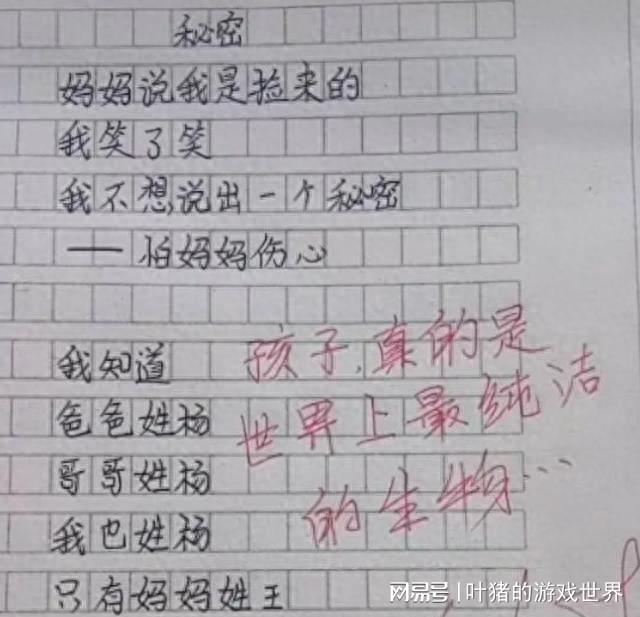 秘密
妈妈说我是捡来的
我笑了笑
我不想说出一个秘密
——怕妈妈伤心
我知道
爸爸姓杨
哥哥姓杨
我也姓杨
只有妈妈姓王
孩子,真的是
世界上最纯洁
的生物…
网易号|叶猪的游戏世界